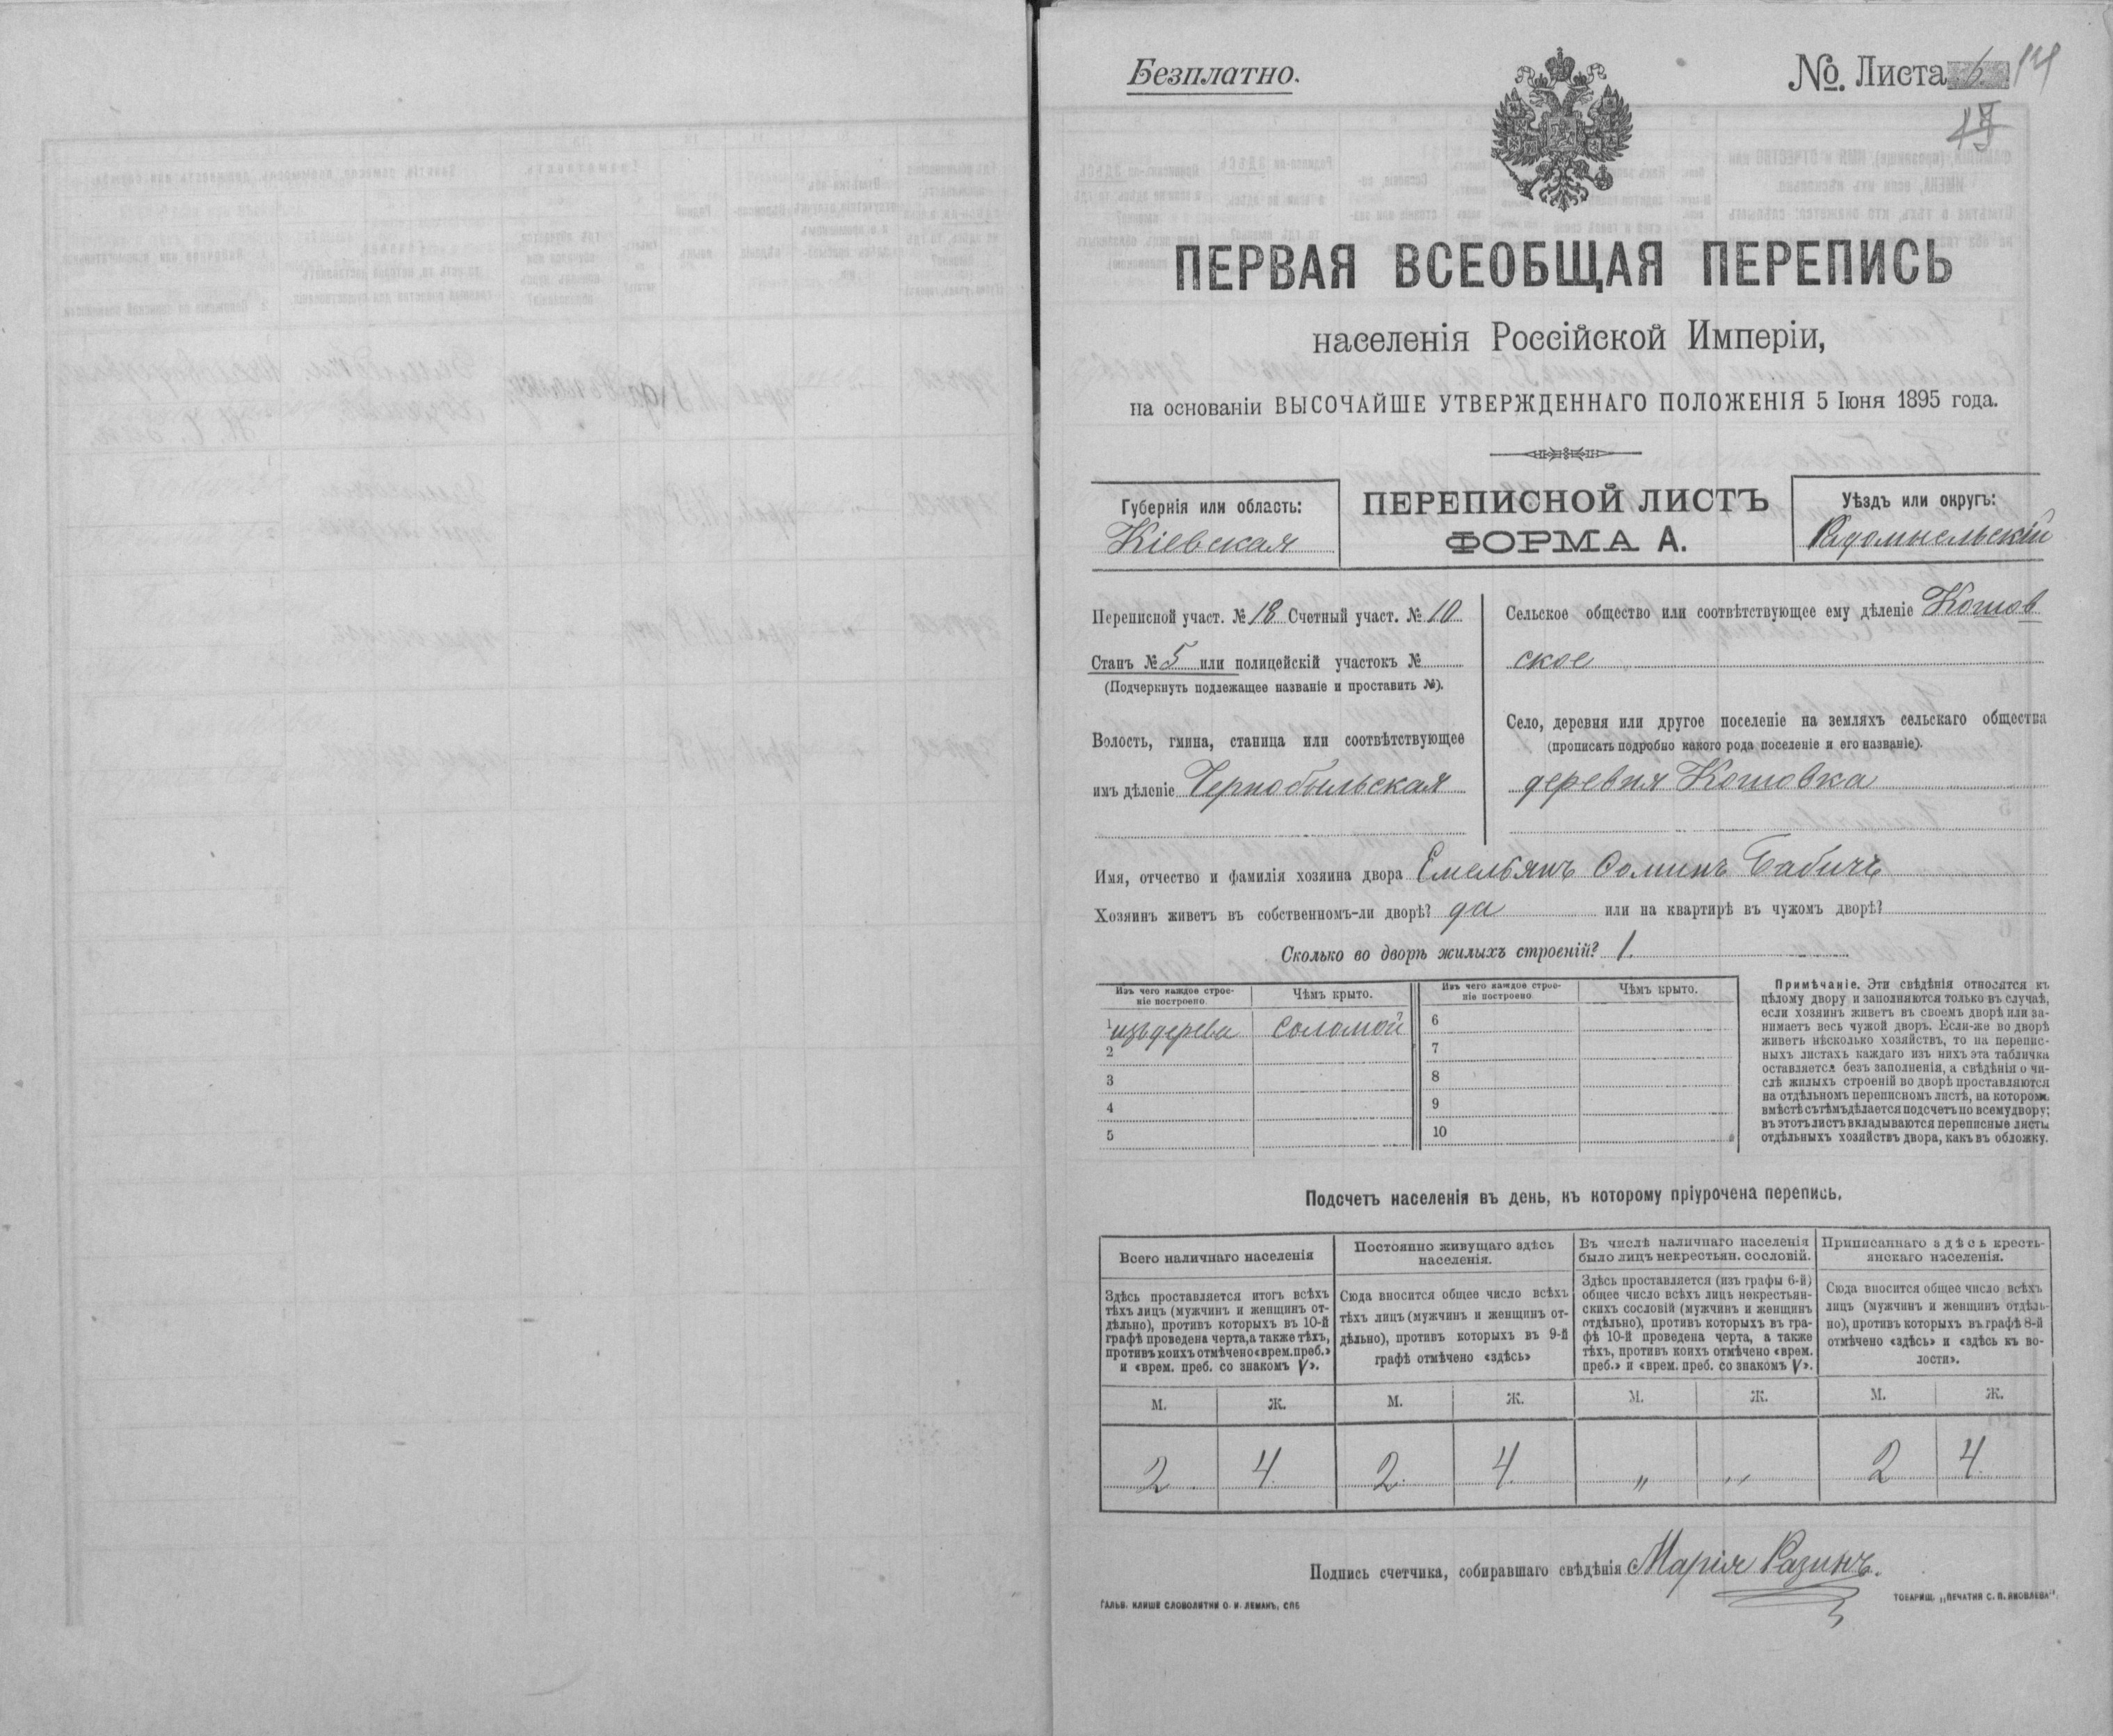 Безплатно.
№. Листа 6 14
ПЕРВАЯ ВСЕОБЩАЯ ПЕРЕПИСЬ
населенія Россійской Имперіи,
на основаніи ВЫСОЧАЙШЕ УТВЕРЖДЕННАГО ПОЛОЖЕНІЯ 5 Іюня 1895 года.
Губернія или область:
Кіевская
ПЕРЕПИСНОЙ ЛИСТЪ
ФОРМА А.
Уѣздъ или округъ:
Радомысльскій
Переписной участ. № 18 Счетный участ. № 10
Станъ № 5 или полицейскій участокъ №
(Подчеркнуть подлежащее названіе и проставить №).
Волость, гмина, станица или соотвѣтствующее
имъ дѣленіе Чернобыльская
Сельское общество или соотвѣтствующее ему дѣленіе Кошов
ское
Село, деревня или другое поселеніе на земляхъ сельскаго общества
(прописать подробно какого рода поселеніе и его названіе).
деревня Кошовка
Имя, отчество и фамилія хозяина двора Емельянъ Фоминъ Бабичъ
Хозяинъ живетъ въ собственномъ-ли дворѣ? да или на квартирѣ въ чужомъ дворѣ?
Сколько во дворѣ жилыхъ строеній? 1.
Изъ чего каждое строе-
ніе построено
Чѣмъ крыто.
Изъ чего каждое строе-
ніе построено
Чѣмъ крыто.
1 изъ дерева соломой
2
3
4
5
6
7
8
9
10
Примѣчаніе. Эти свѣдѣнія относятся къ
цѣлому двору и заполняются только въ случаѣ,
если хозяинъ живетъ въ своемъ дворѣ или за-
нимаетъ весь чужой дворъ. Если-же во дворѣ
живетъ нѣсколько хозяйствъ, то на перепис-
ныхъ листахъ каждаго изъ нихъ эта табличка
оставляется безъ заполненія, а свѣдѣнія о чи-
слѣ жилыхъ строеній во дворѣ проставляются
на отдѣльномъ переписномъ листѣ, на которомъ
вмѣстѣ съ тѣмъ дѣлается подсчетъ по всему двору;
въ этотъ листъ вкладываются переписные листы
отдѣльныхъ хозяйствъ двора, какъ въ обложку.
Подсчетъ населенія въ день, къ которому пріурочена перепись.
Всего наличнаго населенія
Здѣсь проставляется итогъ всѣхъ
тѣхъ лицъ (мужчинъ и женщинъ от-
дѣльно), противъ которыхъ въ 10-й
графѣ проведена черта, а также тѣхъ,
противъ коихъ отмѣчено «врем. преб.»
и «врем. преб. со знакомъ V».
Постоянно живущаго здѣсь
населенія.
Сюда вносится общее число всѣхъ
тѣхъ лицъ (мужчинъ и женщинъ от-
дѣльно), противъ которыхъ въ 9-й
графѣ отмѣчено «здѣсь»
Въ числѣ наличнаго населенія
было лицъ некрестьян. сословій.
Здѣсь проставляется (изъ графы 6-й)
общее число всѣхъ лицъ некрестьян-
скихъ сословій (мужчинъ и женщинъ
отдѣльно), противъ которыхъ въ гра-
фѣ 10-й проведена черта, а также
тѣхъ, противъ коихъ отмѣчено «врем.
преб.» и «врем. преб. со знакомъ V».
Приписаннаго здѣсь кресть-
янскаго населенія.
Сюда вносится общее число всѣхъ
лицъ (мужчинъ и женщинъ отдѣль-
но), противъ которыхъ въ графѣ 8-й
отмѣчено «здѣсь» и «здѣсь къ во-
лости».
М. Ж. М. Ж. М. Ж. М. Ж.
2 4. 2. 4 „ „ 2 4.
Подпись счетчика, собиравшаго свѣдѣнія Марія Разинъ.
ГАЛЬВ. КЛИШЕ СЛОВОЛИТНИ О. И. ЛЕМАНЪ, СПБ
ТОВАРИЩ. „ПЕЧАТНЯ С. П. ЯКОВЛЕВА".